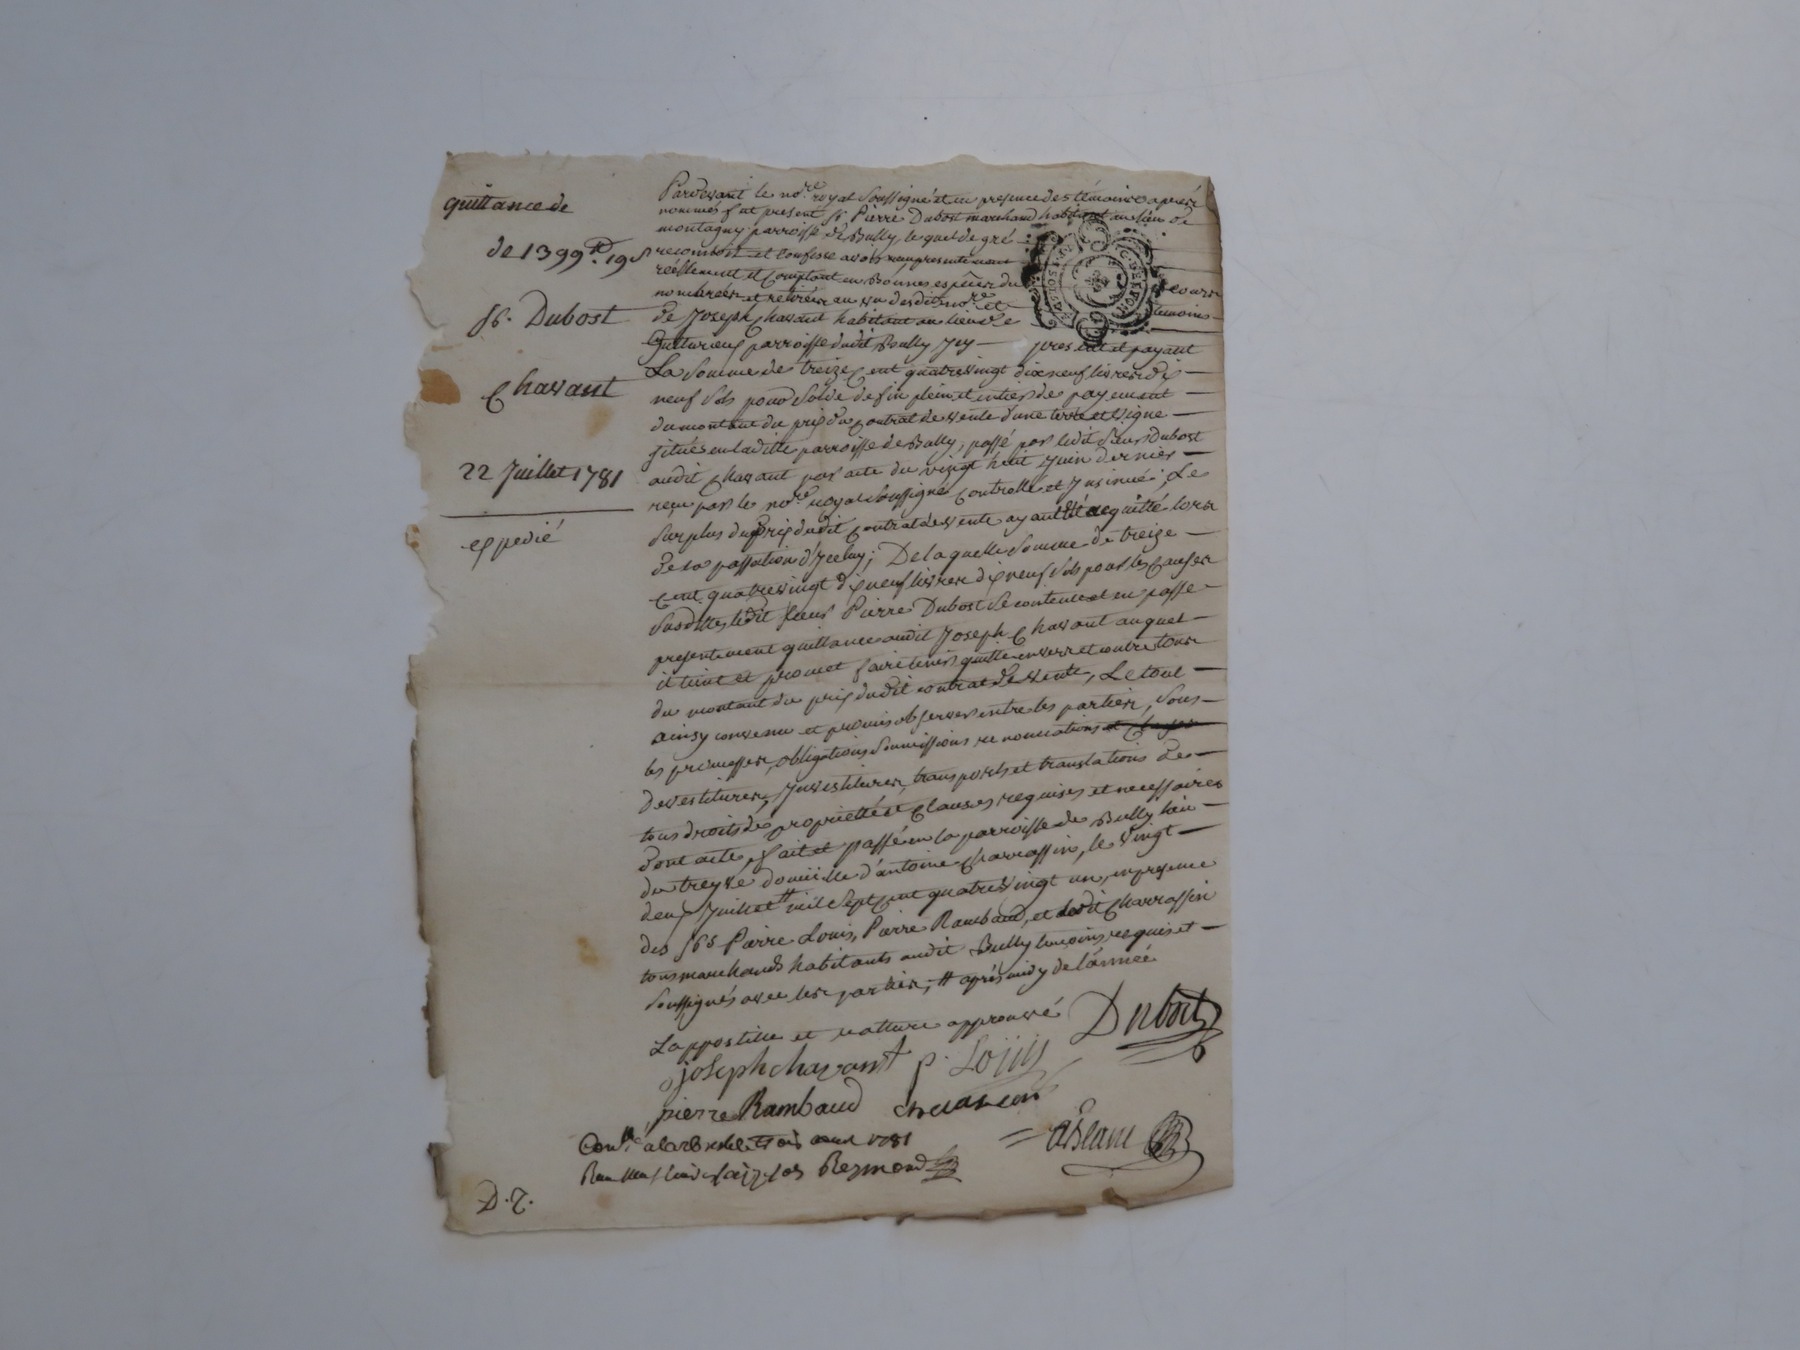 quittance de
de 1399 ₶ 19 s
Sr. Dubost
Chavant
22 Juillet 1781
expedié
Pardevant le nore royal soussigné et en presence des témoins apres
nommés fut present Sr Pierre Dubost marchand habitant au lieu de
montagny parroisse de Bully, lequel de gré
reconnoit et confesse avoir presentement
réellement et comptant en Bonnes espêces du cours
nombrées et retirées au vu desdits nore et temoins
de Joseph Chavant habitant au lieu de
parroisse dudit Bully Icy present et payant
La somme de treize Cent quatrevingt dix neuf livres dix
neuf sols pour Solde de fin plein et entier de payement
du montant du prix du Contrat de vente d'une terre et vigne
situées en laditte parroisse de Bully, passé par ledit Sieur Dubost
audit Chavant par acte du vingt huit Juin dernier
reçu par le nore royal soussigné Controllé et Insinué; Le
surplus du prix dudit Contrat de vente ayant été acquitté lors
de la passation d'Iceluy; De laquelle somme de treize
Cent quatrevingt dix neuf livres dix neuf sols pour les Causes
susdittes ledit sieur Pierre Dubost se contente et en passe
presentement quittance audit Joseph Chavant auquel
il tient et promet faire tenir quitte envers et contre tous
du montant du prix dudit contrat de vente, Le tout
ainsy convenu et promis observer entre les parties, sous
les promesses, obligations, soumissions renonciations et Clauses
devestitures, Investitures, transports et translations de
tous droits de proprietté et Clauses requises et necessaires
dont acte, fait et passé en la parroisse de Bully lieu
du treyve domicille d'antoine Charrassin, le vingt
deux Juillet # mil sept Cent quatrevingt un, en presence
des Srs Pierre Louis, Pierre Rambaud, et ledit Charrassin
tous marchands habitants audit Bully temoins requis et
soussignés avec les parties, # après midy de l'année
L'appostille et rature approuvé
Dubost
joseph chavant p. Loüis
pierre Rambaud
Conlé à larbresle le trois aout 1781
Reymond
D. 7.